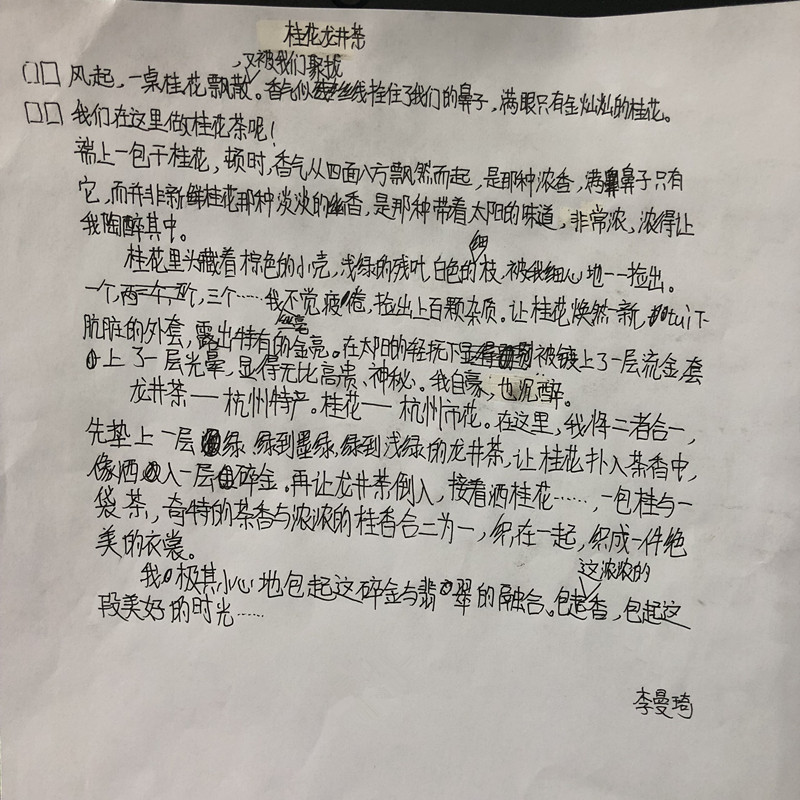 桂花龙井茶
，又被我们聚拢
风起，一桌桂花飘散。香气似丝线拴住了我们的鼻子，满眼只有金灿灿的桂花。
我们在这里做桂花茶呢！
端上一包干桂花，顿时，香气从四面八方飘然而起，是那种浓香，满鼻子只有
它，而并非新鲜桂花那种淡淡的幽香，是那种带着太阳的味道，非常浓，浓得让
我陶醉其中。
细
桂花里头藏着棕色的小壳，浅绿的残叶，白色的枝，被我细心地一一捡出。
一个，两个，三个……我不觉疲倦，捡出上百颗杂质。让桂花焕然一新，tui下
肮脏的外套，露出特有的金亮。在太阳的轻抚下被镀上了一层流金，套
上了一层光晕，显得无比高贵、神秘。我自豪，也沉醉。
龙井茶——杭州特产。桂花——杭州市花。在这里，我将二者合一，
先垫上一层绿，绿到墨绿，绿到浅绿的龙井茶，让桂花扑入茶香中，
像洒入一层碎金。再让龙井茶倒入，接着洒桂花……，一包桂与一
袋茶，奇特的茶香与浓浓的桂香合二为一，织在一起，织成一件绝
美的衣裳。
这浓浓的
我极其小心地包起这碎金与翡翠的融合。包起香，包起这
段美好的时光……
李曼琦